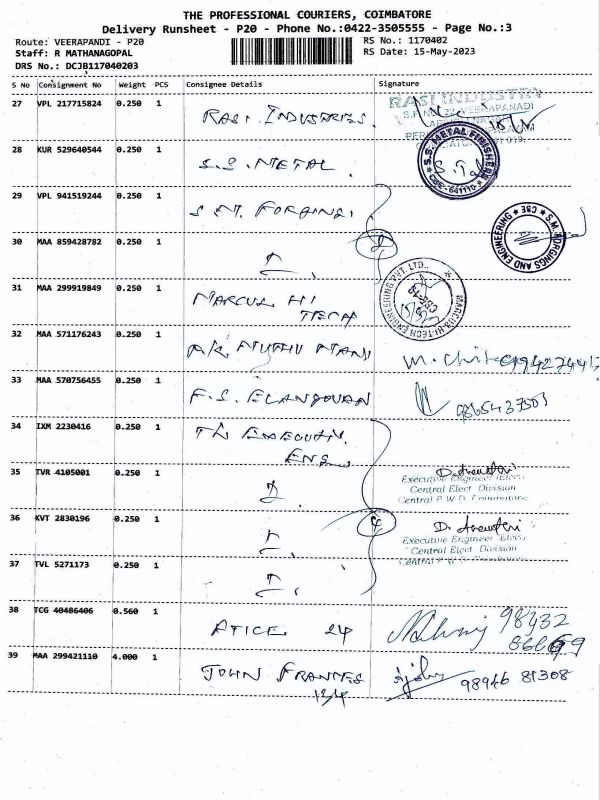 THE PROFESSIONAL COURIERS, COIMBATORE
Delivery Runsheet - P20 - Phone No.:0422-3505555 - Page No.:3
Route: VEERAPANDI - P20
RS No.: 1170402
Staff: R MATHANAGOPAL
RS Date: 15-May-2023
DRS No.: DCJB117040203
S No Consignment No Weight PCS Consignee Details Signature
27 VPL 217715824 0.250 1 RASI INDUSTRIES
RASI INDUSTRY
28 KUR 529640544 0.250 1 S.S. METAL
S.S. METAL FINISHERS
CBE-641110
29 VPL 941519244 0.250 1 S.M. FORGINGS
S.M. FORGINGS AND ENGINEERING CBE
30 MAA 859428782 0.250 1
31 MAA 299919849 0.250 1 MARCUS HI TECH
MARCUS HI-TECH ENGINEERING PVT. LTD.
32 MAA 571176243 0.250 1 A.K. MUTHU MANI
33 MAA 570756455 0.250 1 F.S. ELANGOVAN
34 IXM 2230416 0.250 1 TN EXECUTIV
ENG.
35 TVR 4105001 0.250 1
Executive Engineer (Elec)
Central Elect Division
Central P.W.D. Coimbatore
36 KVT 2830196 0.250 1
Executive Engineer (Elec)
Central Elect Division
37 TVL 5271173 0.250 1
38 TCG 40486406 0.560 1 ATICE 24
98432
39 MAA 299421110 4.000 1 JOHN FRANCIS
98946 81308